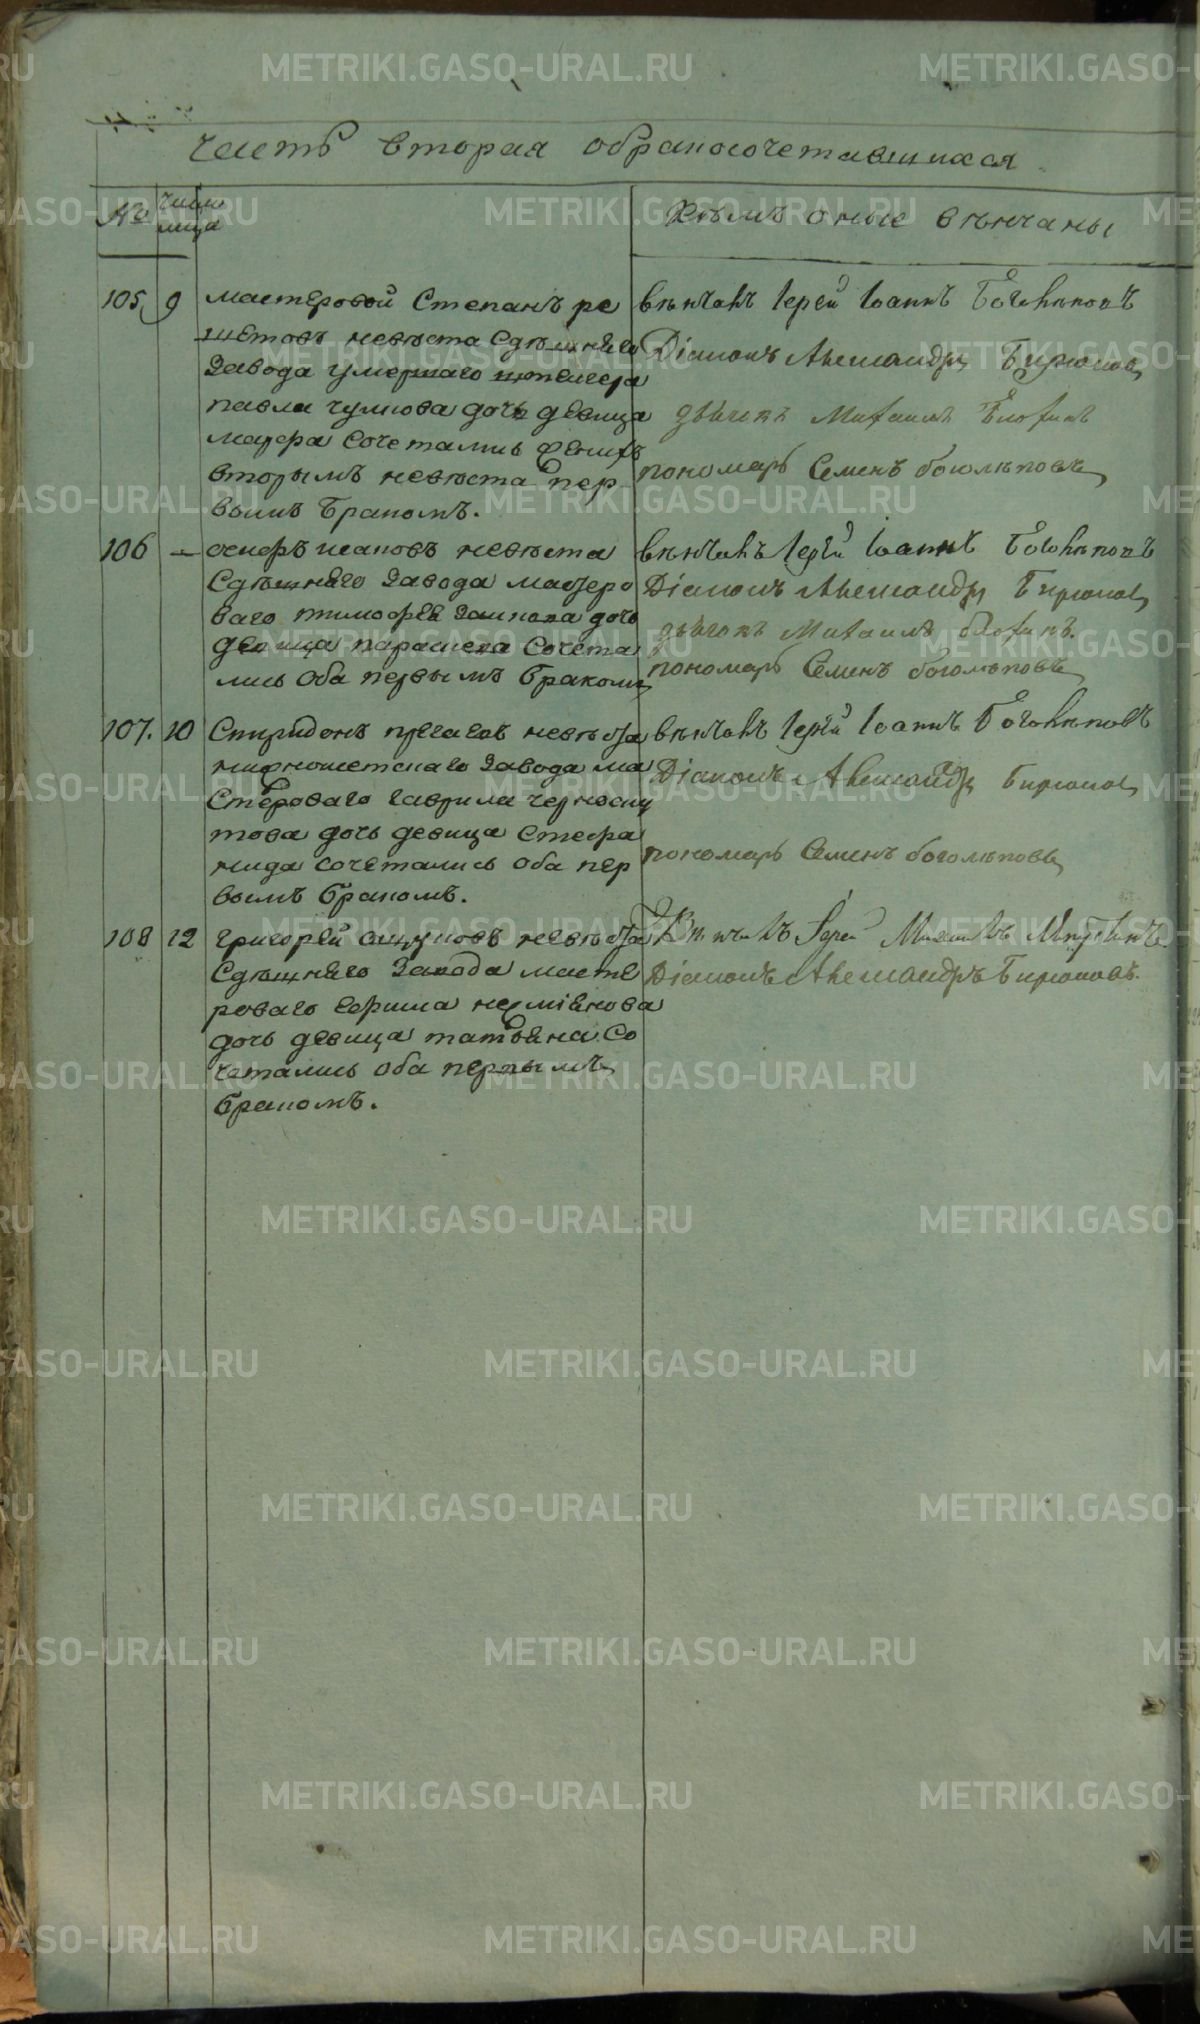 Часть вторая обракосочетавшихся
№ число мца
Кѣмъ оные вѣнчаны
105 9 мастеровой Степанъ ре
шетовъ невѣста Сдѣшняго
Завода умершаго
павла чумова дочь девица
марфа Сочетались женихъ
вторымъ невѣста пер
вымъ Бракомъ.
вѣнчалъ Іерей Іоаннъ Боголѣповъ
Діаконъ Александръ Бирюков
дьячекъ Михаилъ
пономарь Семенъ боголѣповъ
106 — осифъ исаковъ невѣста
Сдѣшняго Завода мастеро
ваго тимофея дочь
девица параскева Сочета
лись Оба первымъ Бракомъ
вѣнчалъ Іерей Іоаннъ Боголѣповъ
Діаконъ Александръ Бирюков
дьячекъ Михаилъ
пономарь Семенъ боголѣповъ
107. 10 Спиридонъ невѣста
Завода ма
Стероваго гаврила черноску
това дочь девица Стефа
нида Сочетались Оба пер
вымъ Бракомъ.
вѣнчалъ Іерей Іоаннъ Боголѣповъ
Діаконъ Александръ Бирюков
пономарь Семенъ боголѣповъ
108 12 григорей невѣста
Сдѣшняго Завода масте
роваго ефима
дочь девица татьяна Со
четались Оба первымъ
Бракомъ.
Вѣнчалъ Іерей
Діаконъ Александръ Бирюковъ.
METRIKI.GASO-URAL.RU